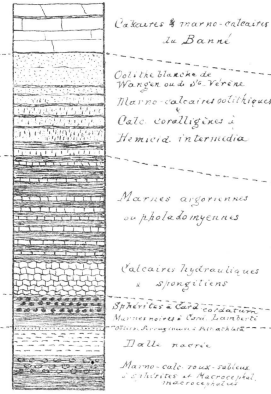 Calcaires & marno-calcaires
du Banné
Oolithe blanche de
Wangen ou de Ste. Vérène
Marno-calcaires oolithiques
Calc. coralligènes à
Hemicid. intermedia
Marnes argoviennes
ou pholadomyennes
Calcaires hydrauliques
à spongitiens
Sphérites à Card. cordatum
Marnes noires à Card. Lamberti
Dalle nacrée
Marno-calc. roux-sableux
à sphérites et Macrocephal.
macrocephalus